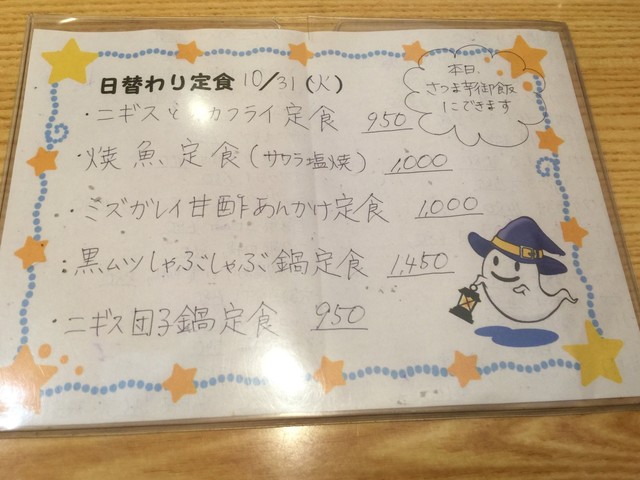 日替わり定食 10/31(火)
本日、
さつま芋御飯
にできます
・ニギスと カフライ定食 950
・焼魚定食(サワラ塩焼) 1,000
・ミズガレイ甘酢あんかけ定食 1,000
・黒ムツしゃぶしゃぶ鍋定食 1,450
・ニギス団子鍋定食 950